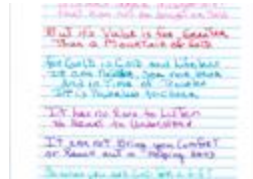 that can not be bought or sold
But its Value is far Greater
Than a Mountain of Gold
for Gold is Cold and Lifeless
It can neither see nor hear
And in Time of Trouble
IT is Powerless to cheer
IT has no Ears to LisTen
or Heart to Understand
IT can not Bring you Comfort
or Reach out a Helping Hand